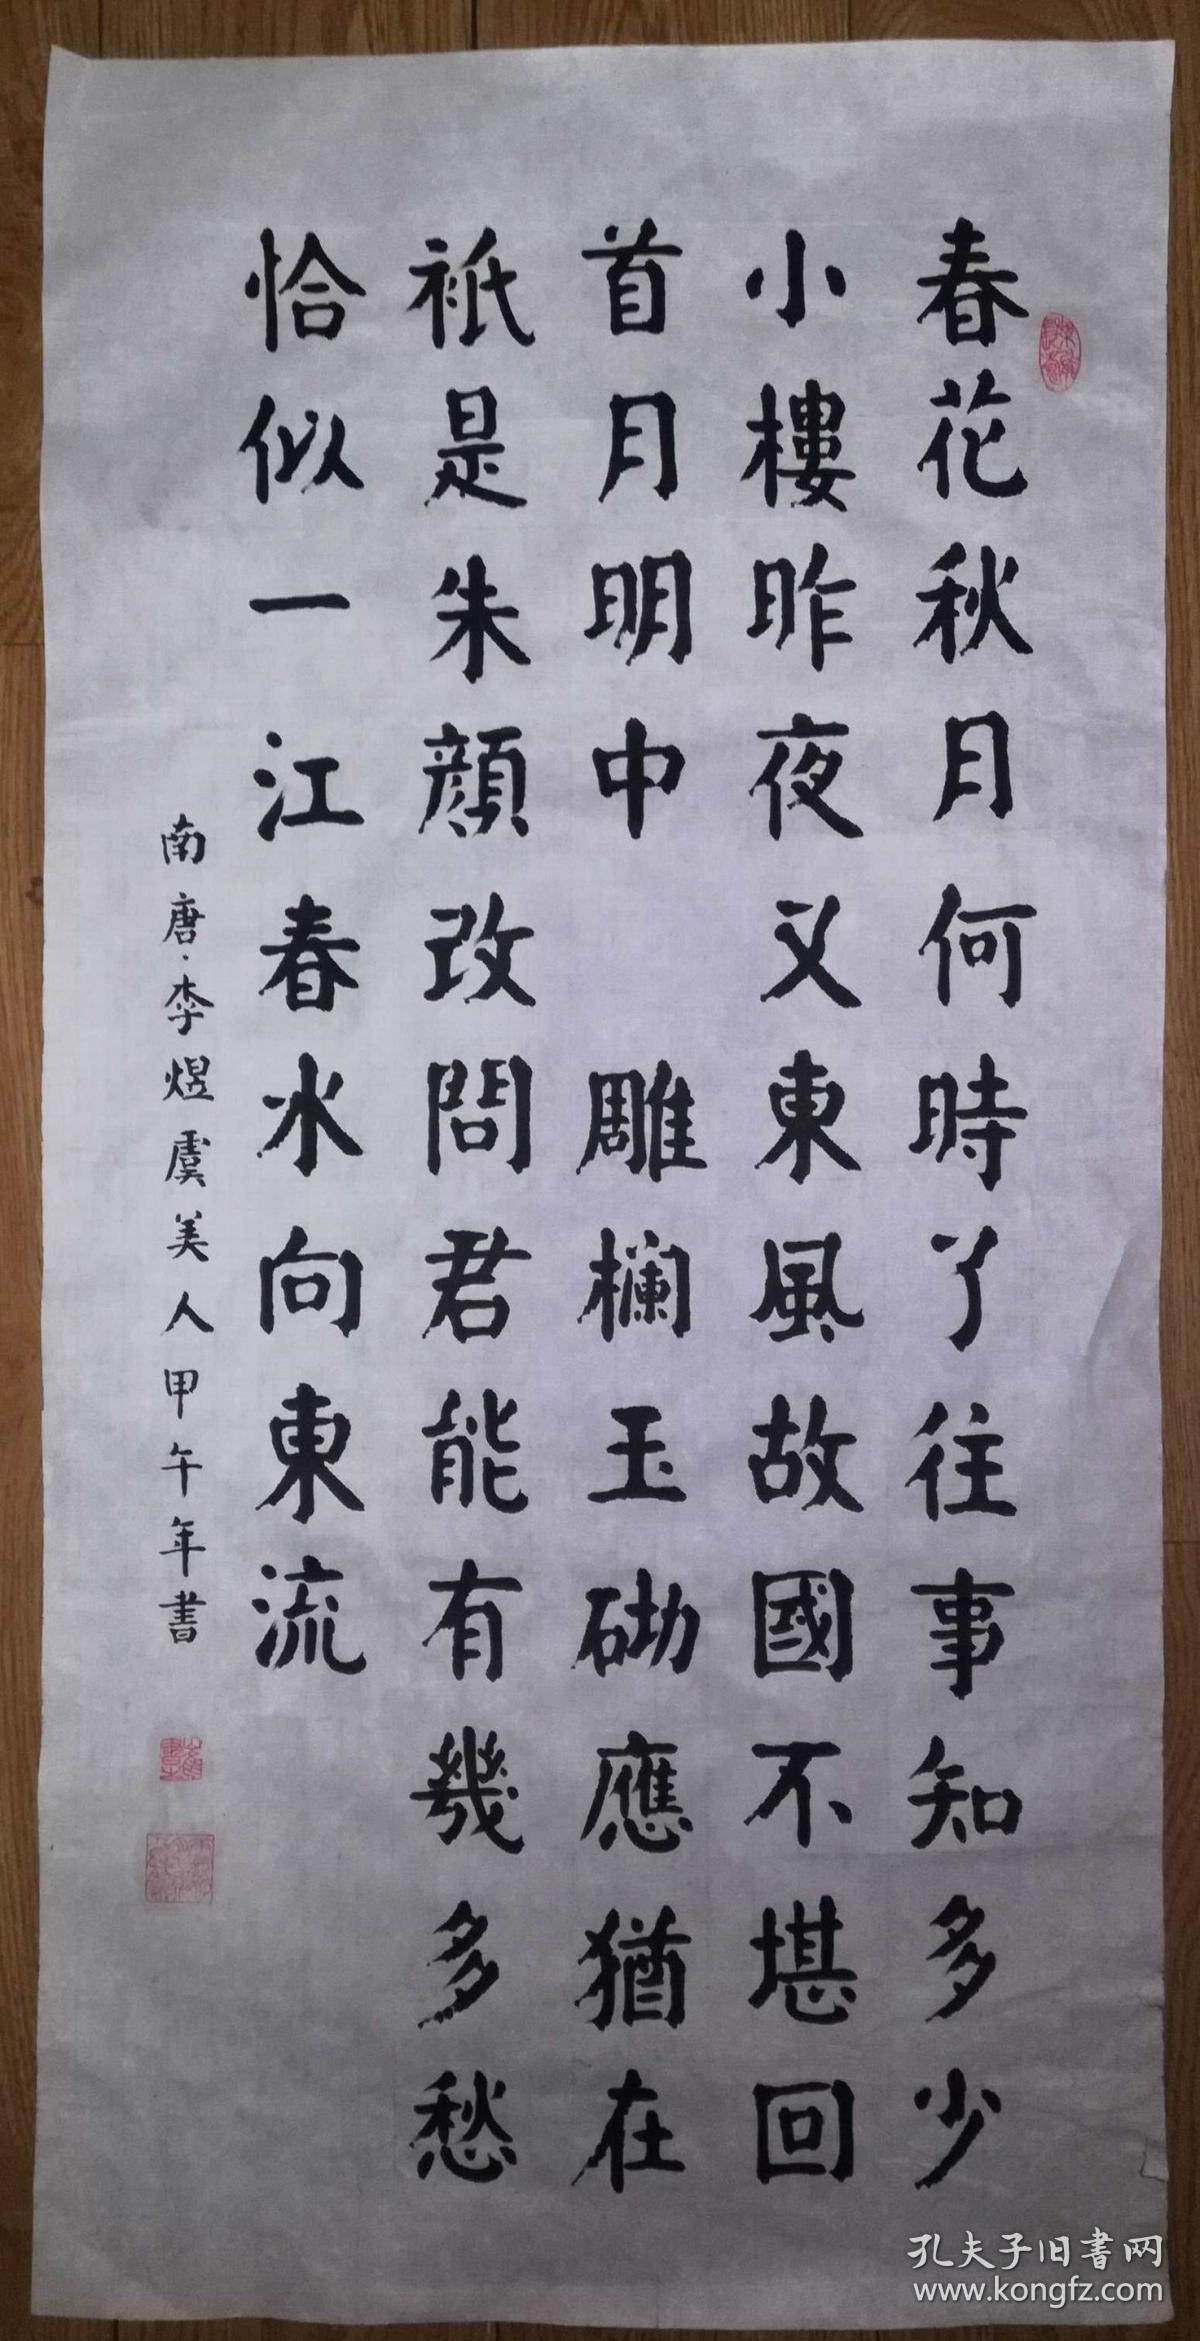 春花秋月何時了往事知多少
小樓昨夜又東風故國不堪回
首月明中 雕欄玉砌應猶在
祇是朱顏改問君能有幾多愁
恰似一江春水向東流
南唐·李煜虞美人甲午年書
孔夫子旧書网
www.kongfz.com